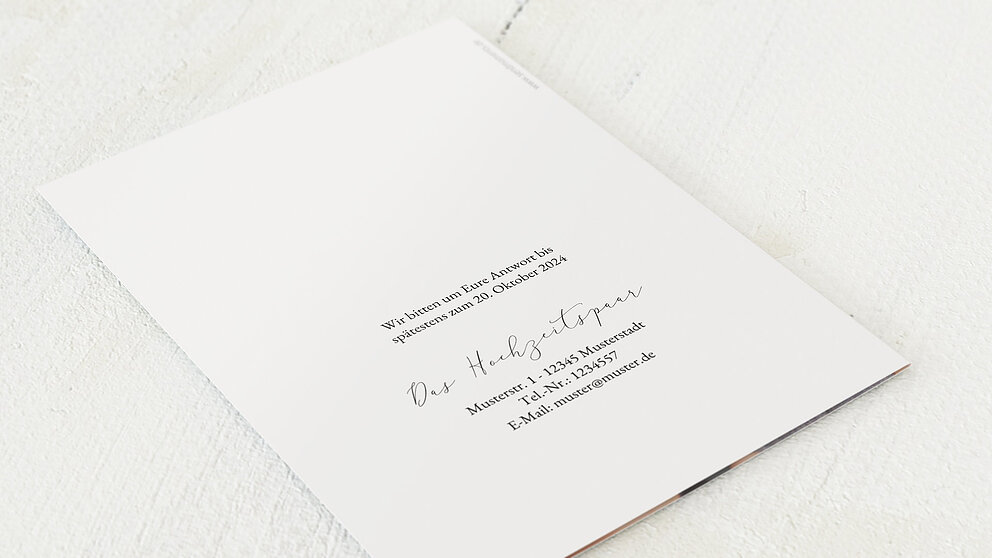 Wir bitten um Eure Antwort bis
spätestens zum 20. Oktober 2024
Das Hochzeitspaar
Musterstr. 1 - 12345 Musterstadt
Tel.-Nr.: 1234557
E-Mail: muster@muster.de